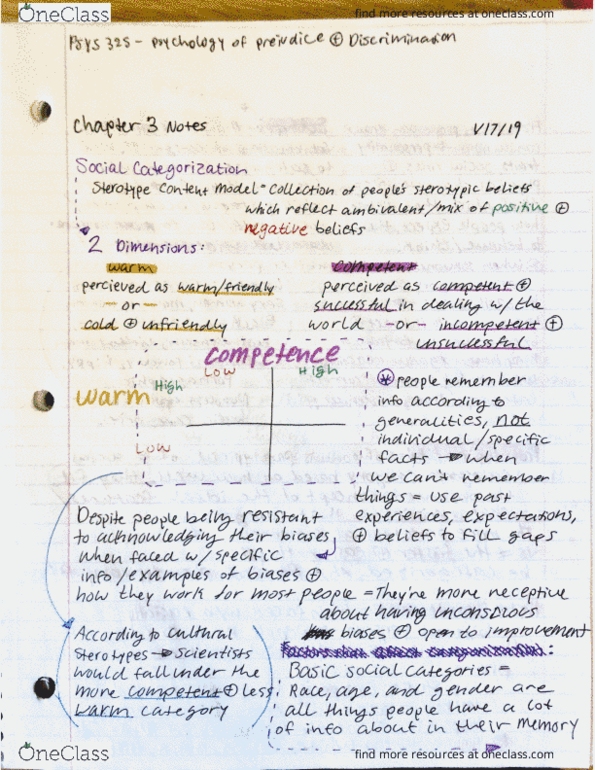 OneClass
find more resources at oneclass.com
Psys 325 - psychology of prejudice ⊕ Discrimination
Chapter 3 Notes
1/17/19
Social Categorization
Sterotype Content Model = Collection of people's sterotypic beliefs
which reflect ambivalent/mix of positive ⊕
negative beliefs
2 Dimensions:
warm
percieved as warm/friendly
-or-
cold ⊕ unfriendly
Competent
perceived as competent ⊕
successful in dealing w/ the
world -or- incompetent ⊕
unsuccessful
competence
Low High
warm High
Low
* people remember
info according to
generalities, not
individual/specific
facts → when
we can't remember
things = use past
experiences, expectations,
⊕ beliefs to fill gaps
Despite people being resistant
to acknowledging their biases
when faced w/ specific
info/examples of biases ⊕
how they work for most people = They're more receptive
about having unconscious
biases ⊕ open to improvement
According to cultural
sterotypes → scientists
would fall under the
more competent ⊕ less
warm category
Basic social categories =
Race, age, and gender are
all things people have a lot
of info about in their memory
OneClass
find more resources at oneclass.com